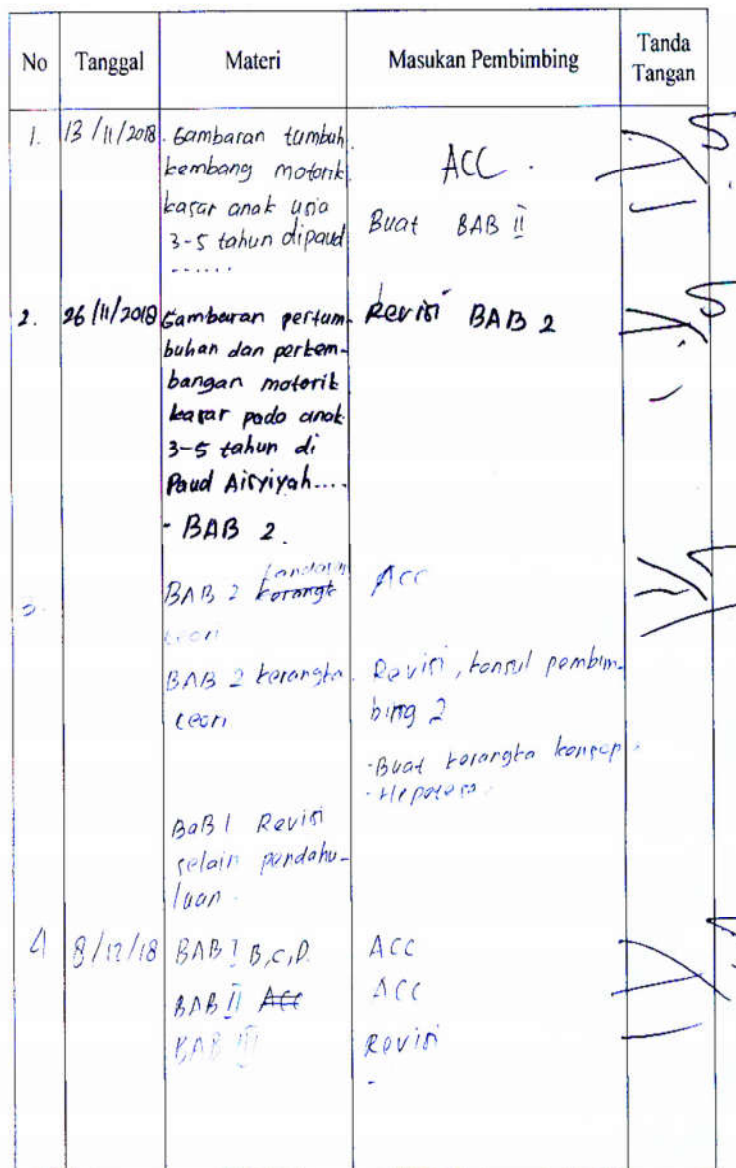 No Tanggal Materi Masukan Pembimbing Tanda
Tangan
1. 13/11/2018 Gambaran tumbuh
kembang motorik
kasar anak usia
3-5 tahun dipaud
......
ACC.
Buat BAB II
2. 26/11/2018 Gambaran pertum-
buhan dan perkem-
bangan motorik
kasar pada anak
3-5 tahun di
Paud Aisyiyah....
- BAB 2.
Revisi BAB 2
3.
Landasan
BAB 2 kerangk
teori
Acc
BAB 2 kerangka
teori
Revisi, konsul pembim-
bing 2
- Buat kerangka konsep
- Hipotesa
BaB 1 Revisi
selain pendahu-
luan.
4 8/12/18 BAB I B,C,D. ACC
BAB II ACC ACC
BAB III Revisi
-